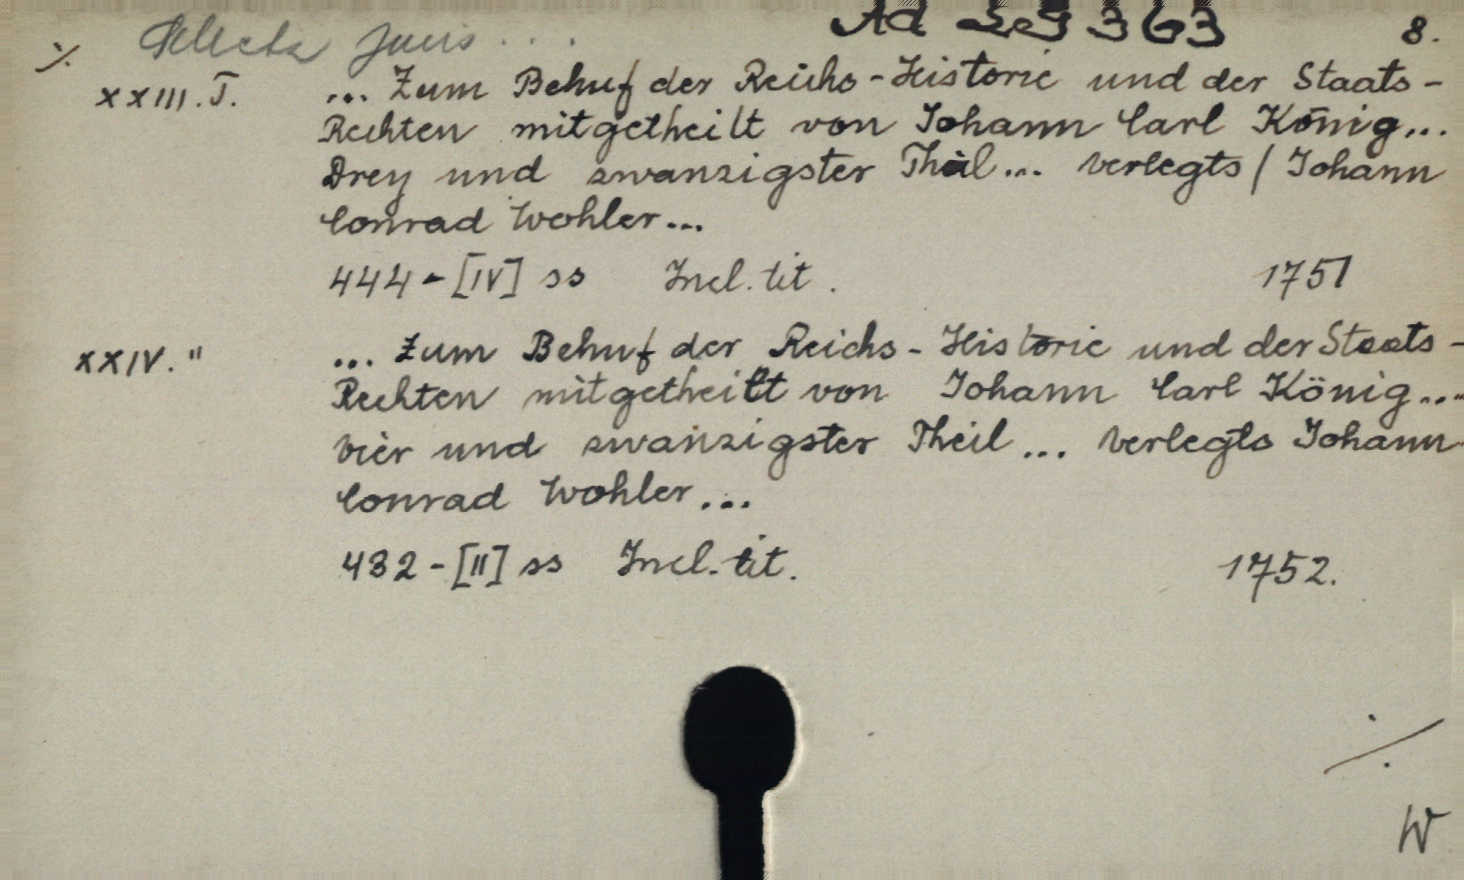 Ad 29363 8.
·/. Selecta Juris ....
XXIII. T. ... Zum Behuf der Reichs-Historie und der Staats-
Rechten mitgetheilt von Johann Carl König...
Drey und zwanzigster Theil... verlegts / Johann
Conrad Wohler...
444-[IV] ss Incl. tit. 1751
XXIV. " ... Zum Behuf der Reichs-Historie und der Staats-
Rechten mitgetheilt von Johann Carl König...
Vier und zwanzigster Theil... Verlegts Johann
Conrad Wohler...
432-[II] ss Incl. tit. 1752.
·/.
W